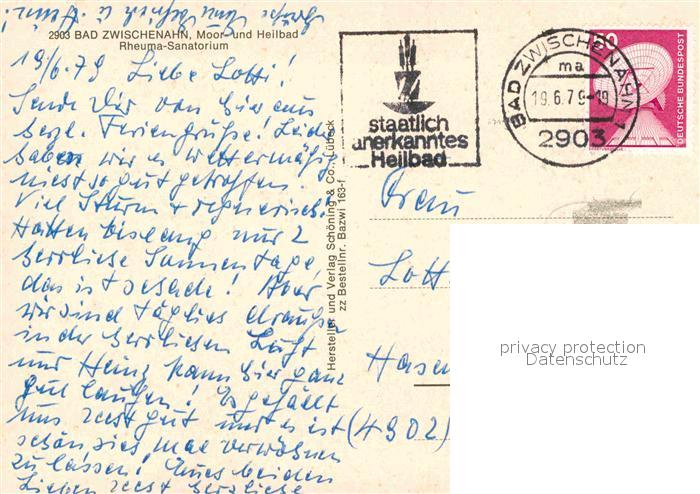 2903 BAD ZWISCHENAHN, Moor- und Heilbad
Rheuma-Sanatorium
19/6.79 Liebe Lotti!
Sende Dir von hier aus
herzl. Feriengrüße! Leider
haben wir es wettermäßig
nicht so gut getroffen.
Viel Sturm + regnerisch!
Hatten bislang nur 2
herrliche Sonnentage,
das ist schade! Aber
wir sind täglich draußen
in der herrlichen Luft
und Heinz kann hier ganz
gut laufen! Es gefällt
uns recht gut und es ist
schön sich mal verwöhnen
zu lassen! Euch beiden
Lieben recht herzliche
Grüße
Hersteller und Verlag Schöning & Co., Lübeck
zz Bestellnr. Bazwi 163-f
staatlich
anerkanntes
Heilbad
BAD ZWISCHENAHN 1
ma
19.6.79-19
2903
DEUTSCHE BUNDESPOST
Frau
Lott
Hasen
(4902)
privacy protection
Datenschutz